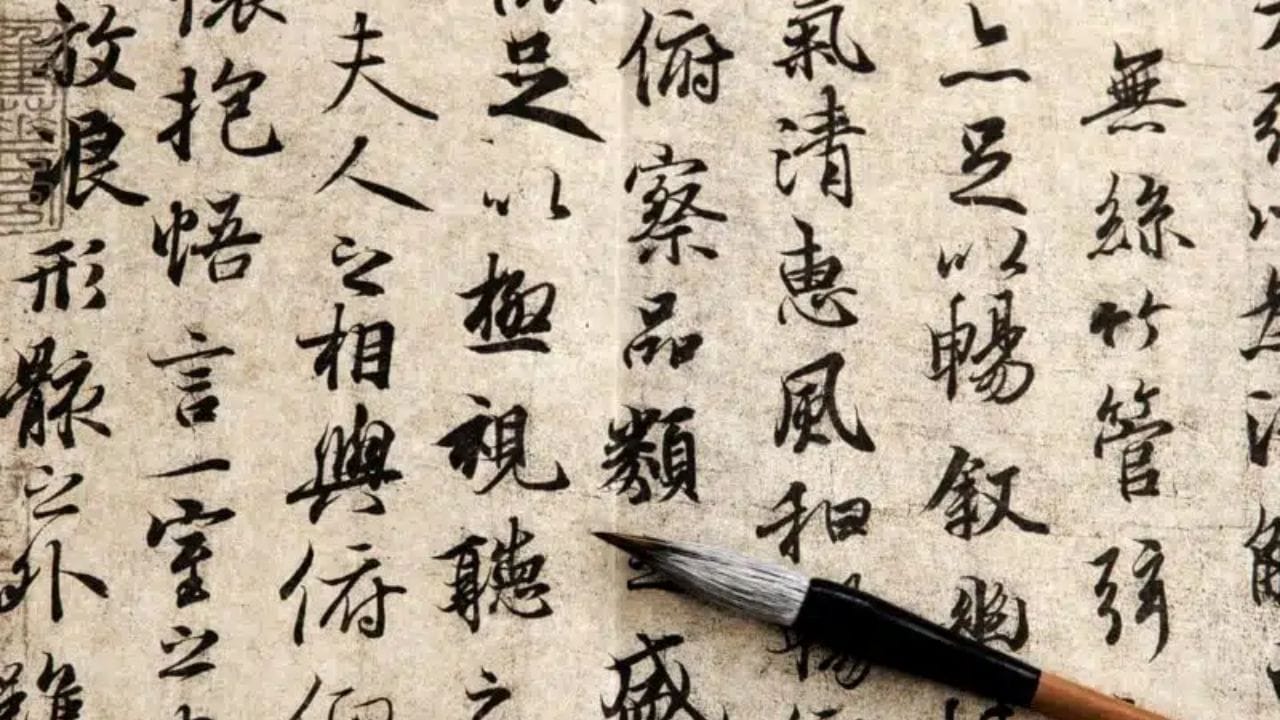 引以為流觴
無絲竹管弦
亦足以暢敘幽
氣清惠風和暢
俯察品類之盛
足以極視聽之
夫人之相與俯仰
懷抱悟言一室之
放浪形骸之外雖